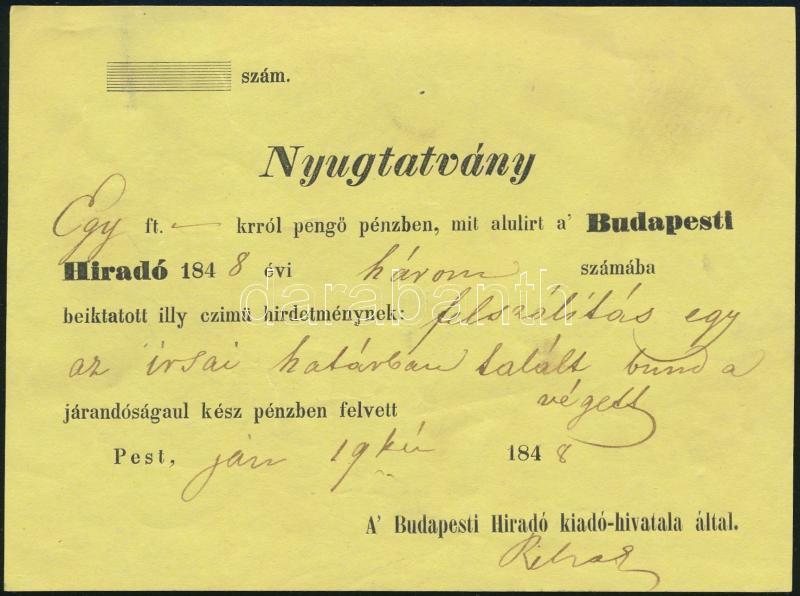 szám.
Nyugtatvány
Egy ft. — krról pengő pénzben, mit alulirt a' Budapesti
Hiradó 1848 évi három számába
darabanth
beiktatott illy czimü hirdetménynek: felszálitás egy
az irsai határban talált bunda
járandóságaul kész pénzben felvett végett
Pest, ján 19kén 1848
A' Budapesti Hiradó kiadó-hivatala által.